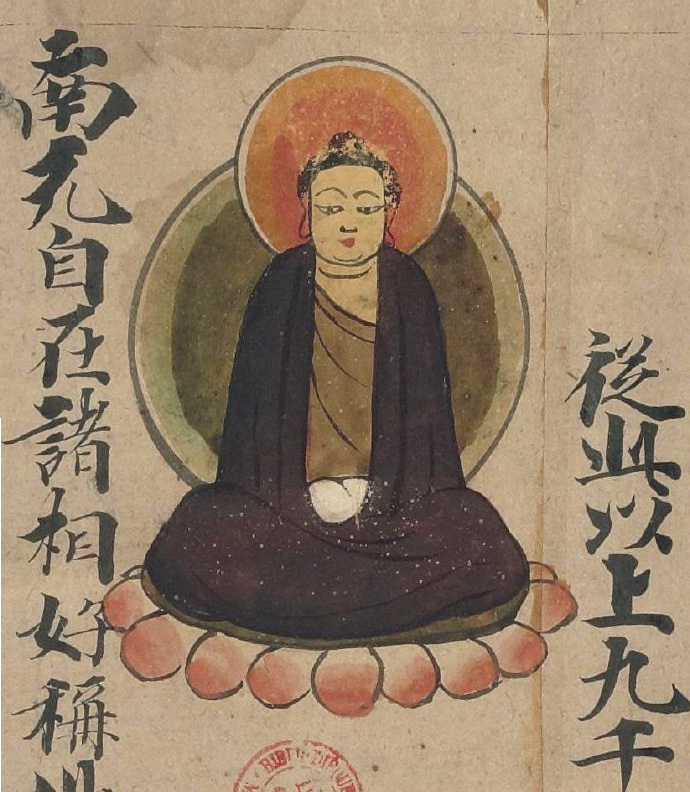 從此以上九千
南无自在諸相好稱